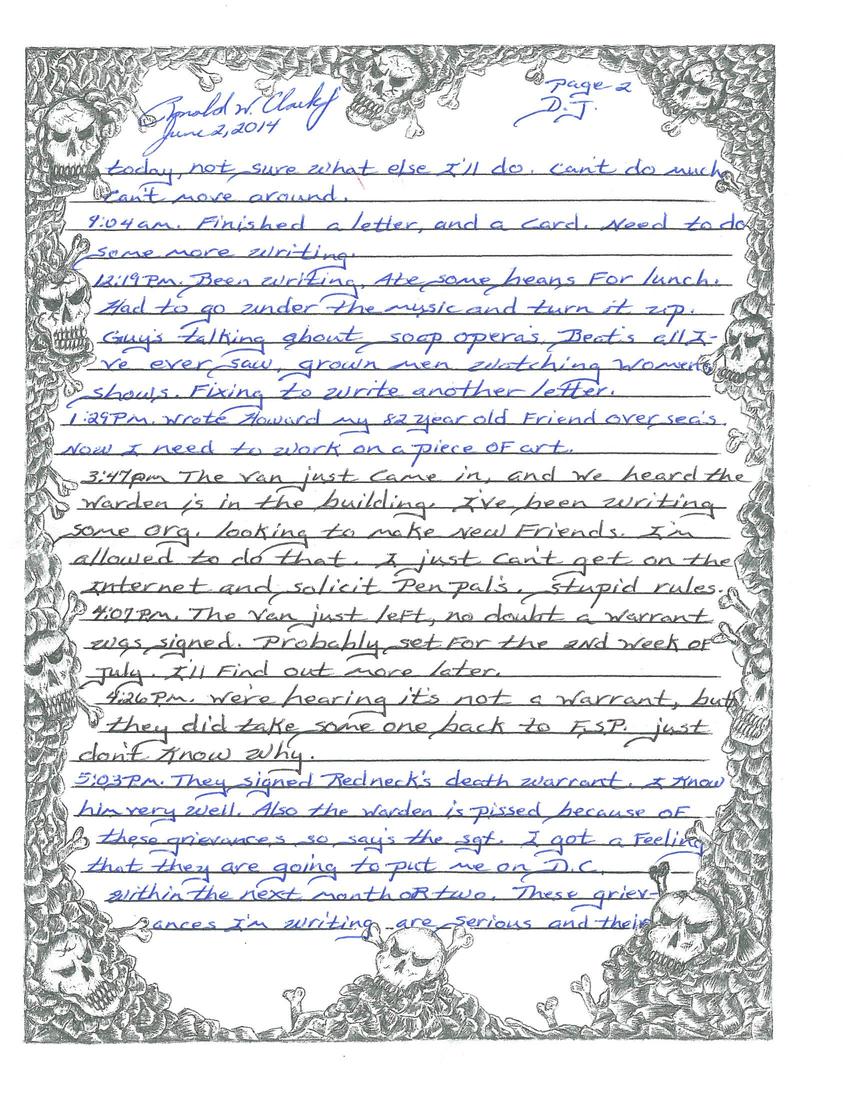 Ronald W. Clark Jr
June 2, 2014
Page 2
D.J.
today, not sure what else I'll do. can't do much
can't move around.
9:04 am. Finished a letter, and a card. Need to do
some more writing.
12:19 PM. Been writing. Ate some beans For lunch.
Had to go under the music and turn it up.
Guy's talking about soap opera's. Beat's all I-
've ever saw, grown men watching women's
show's. Fixing to write another letter.
1:29 PM. wrote Howard my 82 year old Friend over sea's.
Now I need to work on a piece OF art.
3:47 pm The van just came in, and we heard the
warden is in the building. I've been writing
some org. looking to make New Friends. I'm
allowed to do that. I just can't get on the
internet and solicit Pen pal's. stupid rules.
4:07 PM. The van just left, no doubt a warrant
was signed. Probably set For the 2nd week OF
July. I'll Find out more later.
4:26 PM. we're hearing it's not a warrant, but
they did take some one back to F.S.P. just
don't know why.
5:03 PM. They signed Redneck's death warrant. I know
him very well. Also the warden is pissed because OF
these grievances so say's the sgt. I got a Feeling
that they are going to put me on D.C.
within the next month OR two. These griev-
ances I'm writing are serious and their